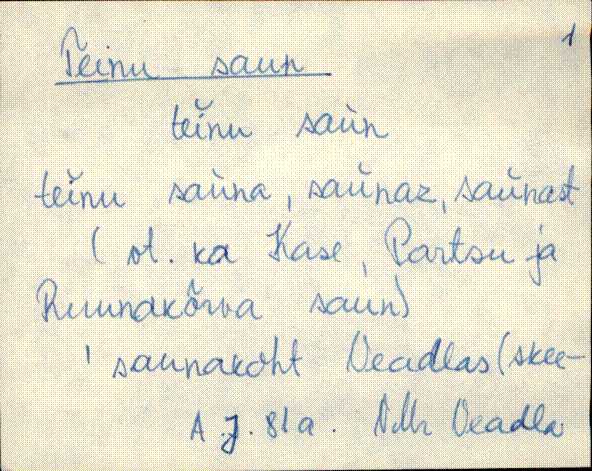 1
Teinu saun
teĭnu saùn
teĭnu saùna, saŭnaz, saŭnast
( vt. ka Kase, Partsu ja
Ruunakõrva saun)
' saunakoht Veadlas (skee-
A. J. 81a. Veadla